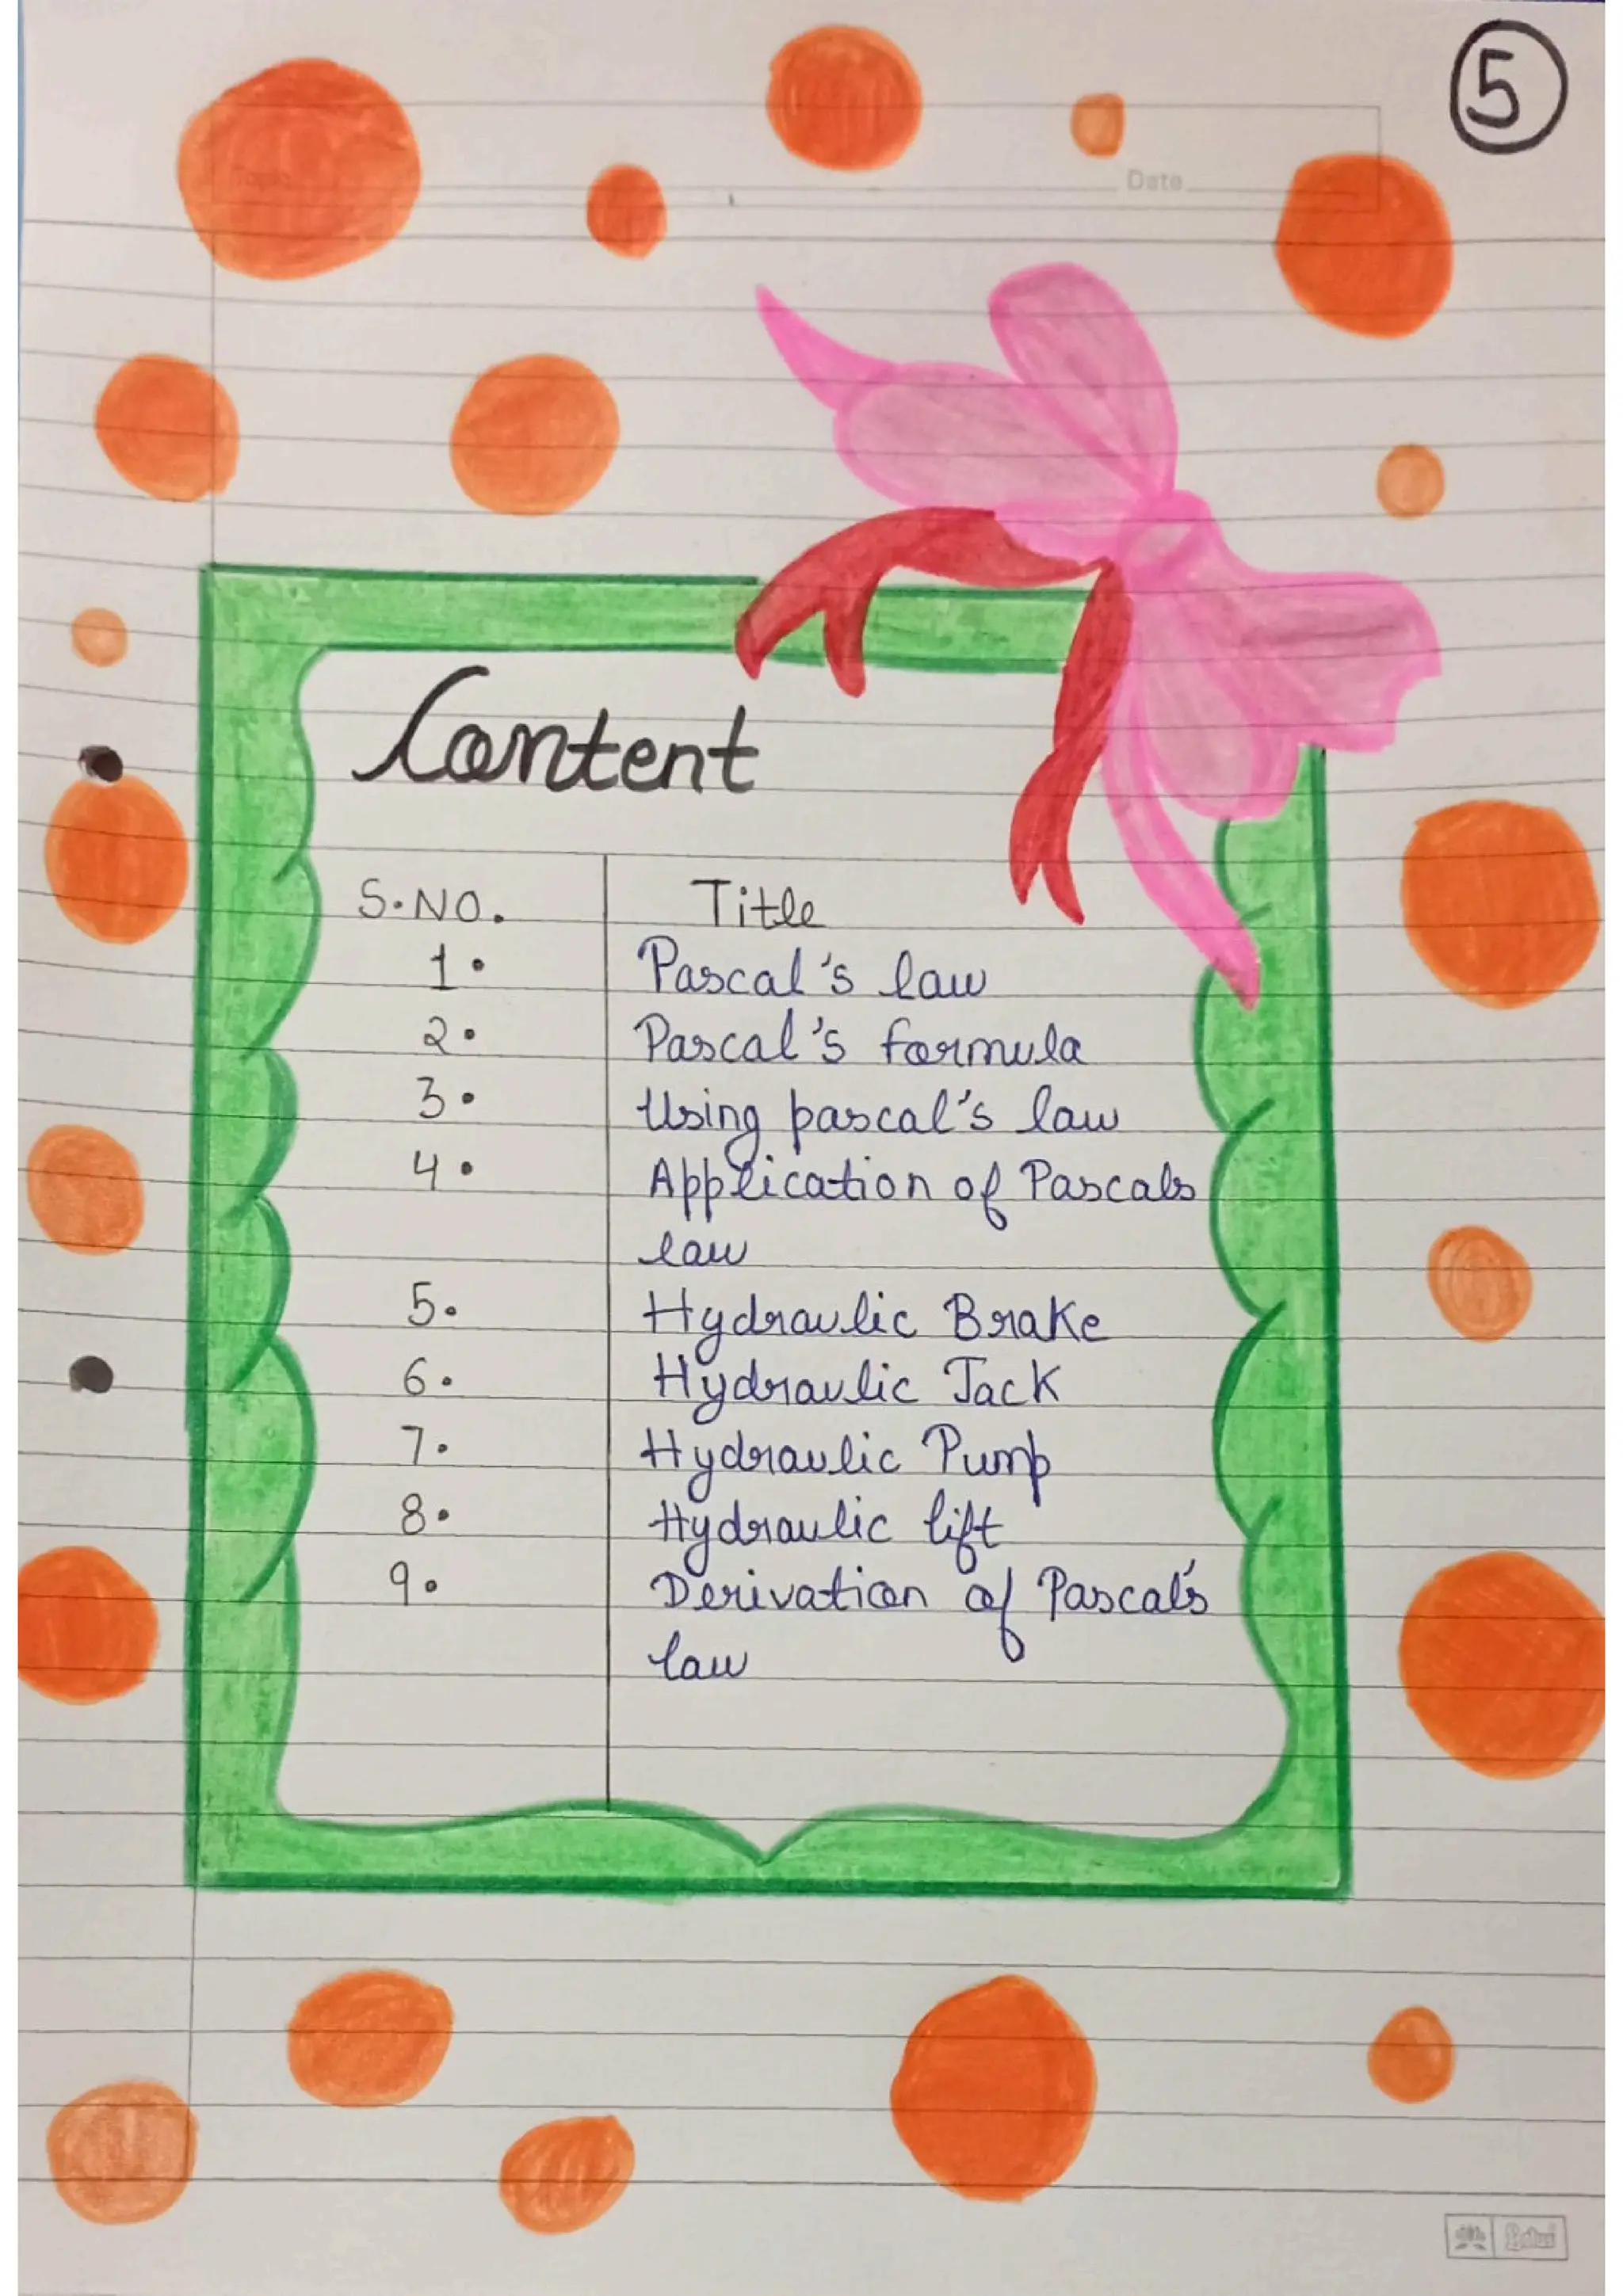 5
Topic
Date
Content
S.NO. Title
1. Pascal's law
2. Pascal's formula
3. Using pascal's law
4. Application of Pascals
law
5. Hydraulic Brake
6. Hydraulic Jack
7. Hydraulic Pump
8. Hydraulic lift
9. Derivation of Pascal's
law